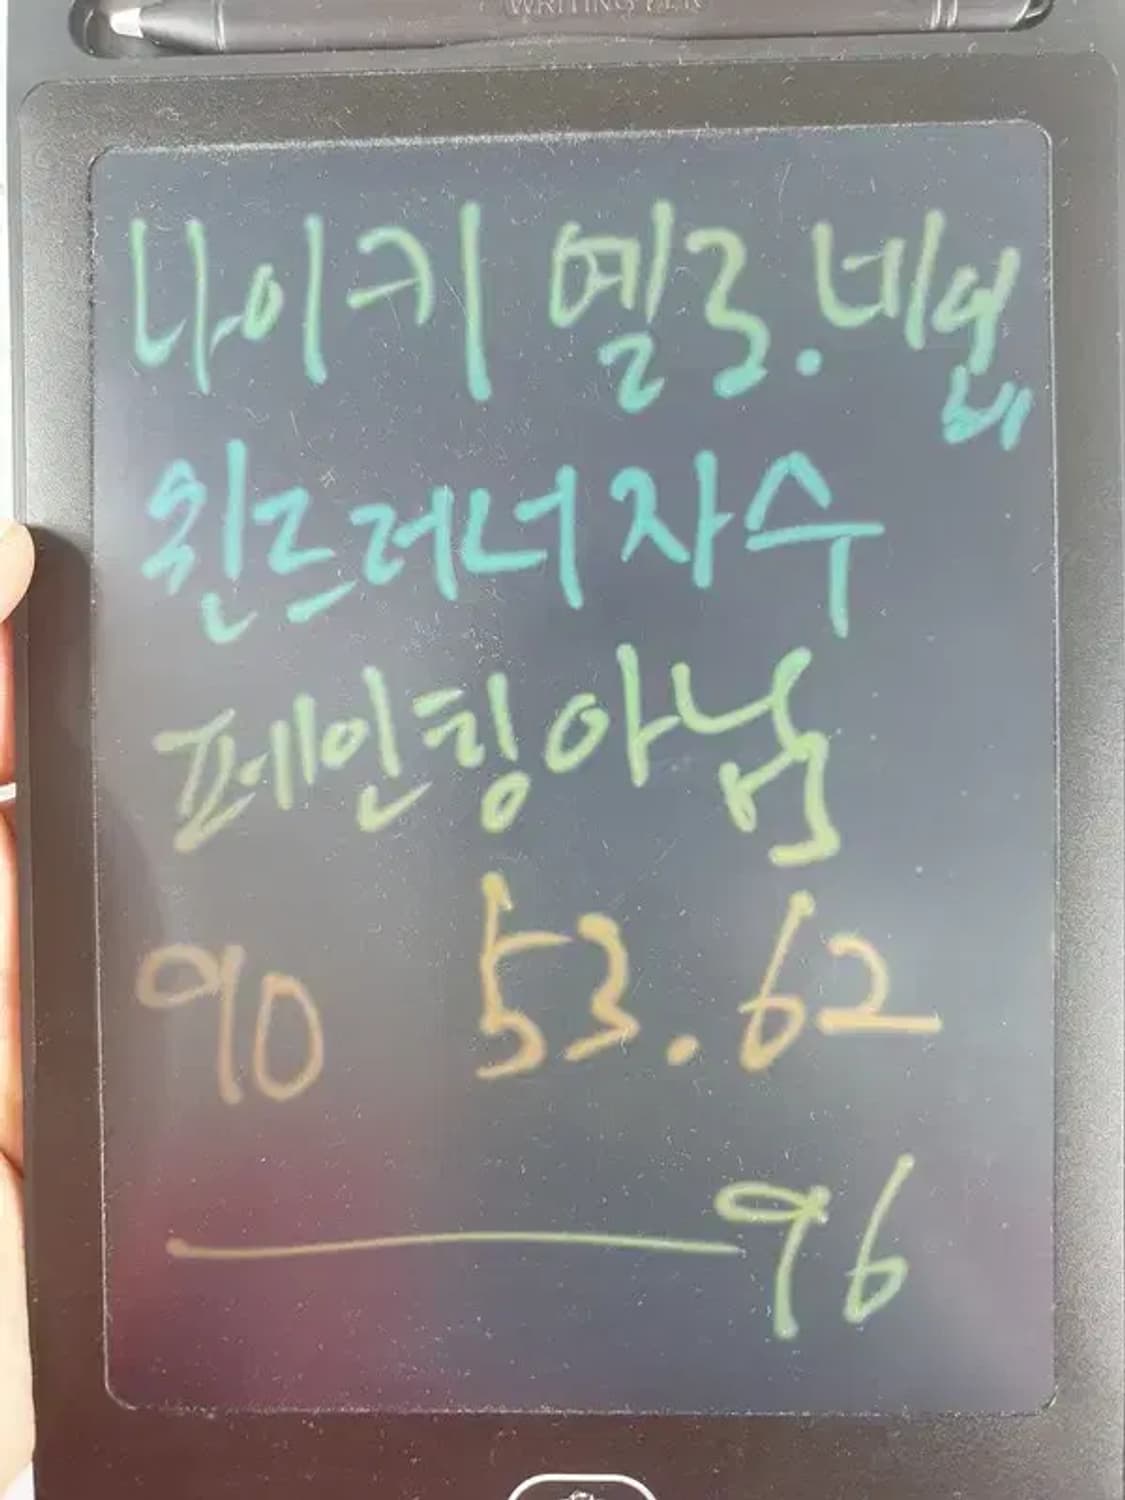 WRITING PEN
나이키 옐로.네이비
윈드러너자수
페인팅아님
90 53.62
96